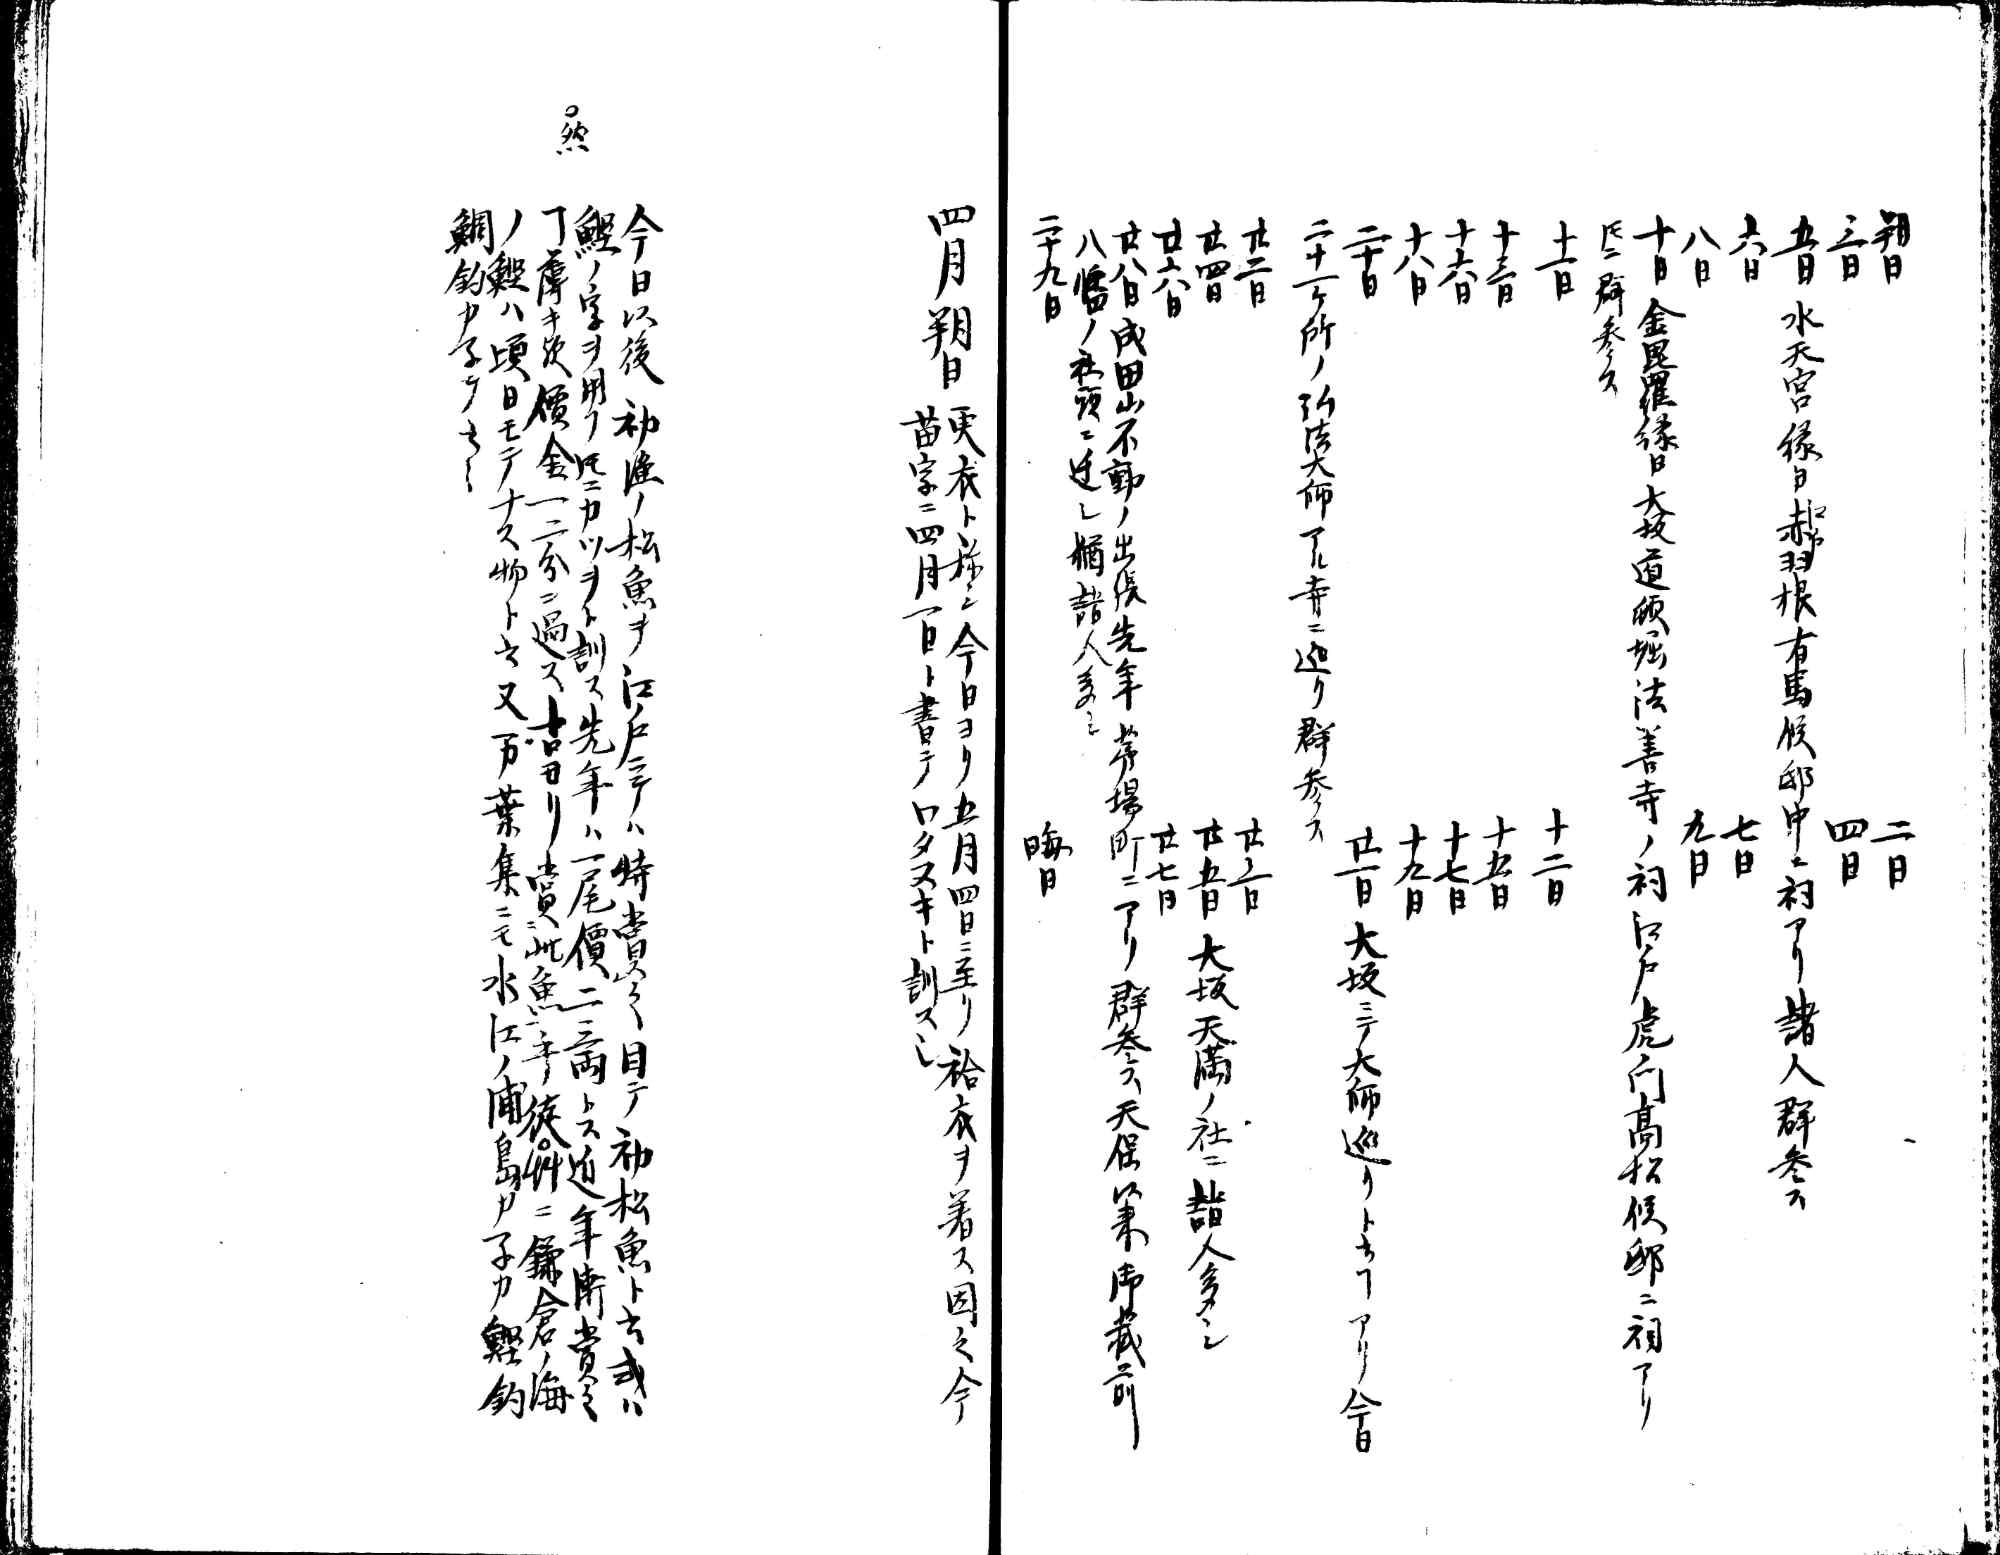 朔日　二日
三日　四日
五日　水天宮縁日赤羽根有馬候邸中ニ祠アリ諸人群参ス
六日　七日
八日　九日
十日　金毘羅縁日大坂道頓堀法善寺ノ祠江戸虎ノ門高松候邸ニ祠アリ
氏ニ群参ス
十一日　十二日
十三日　十五日
十六日　十七日
十八日　十九日
二十日　廿一日　大坂ニテ大師巡リト云フアリ今日
二十一ケ所ノ弘法大師アル寺ニ巡リ群参ス
廿二日　廿三日
廿四日　廿五日　大坂天満ノ社ニ詣人多シ
廿六日　廿七日
廿八日　成田山不動ノ出張先年茅場町ニアリ群参ス天保以来御蔵前
八幡ノ社頭ニ迁シ猶詣人多シ
二十九日　晦日
四月朔日　更衣ト称シ今日ヨリ五月四日ニ至リ袷衣ヲ着ス因之今
苗字ニ四月一日ト書テワタヌキト訓ス
今日以後初漁ノ松魚ヲ江戸ニテハ特賞之目テ初松魚ト云或ハ
鰹ノ字ヲ用フ氏ニカツヲト訓ス先年ハ一尾價二三両トス近年漸賞之
薄キ歟價金一二分ニ過ス昔ヨリ賞此魚 徒然艸ニ鎌倉ノ海
ノ鰹ハ頃日モテナス物ト云又万葉集ニモ水江ノ浦島カ子カ鰹釣
鯛釣カ子テ云々